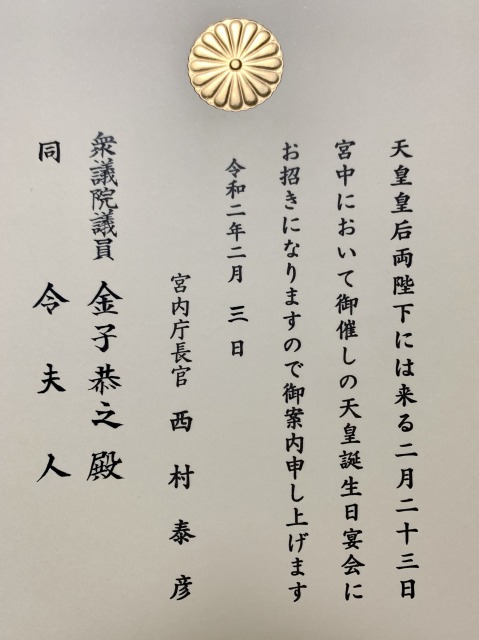 天皇皇后両陛下には来る二月二十三日
宮中において御催しの天皇誕生日宴会に
お招きになりますので御案内申し上げます
令和二年二月 三 日
宮内庁長官 西 村 泰 彦
衆議院議員 金子恭之殿
同 令 夫 人